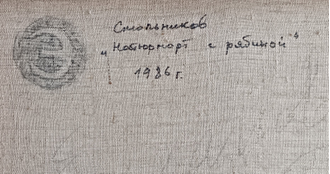 Стольников
"Натюрморт с рябиной"
1986 г.